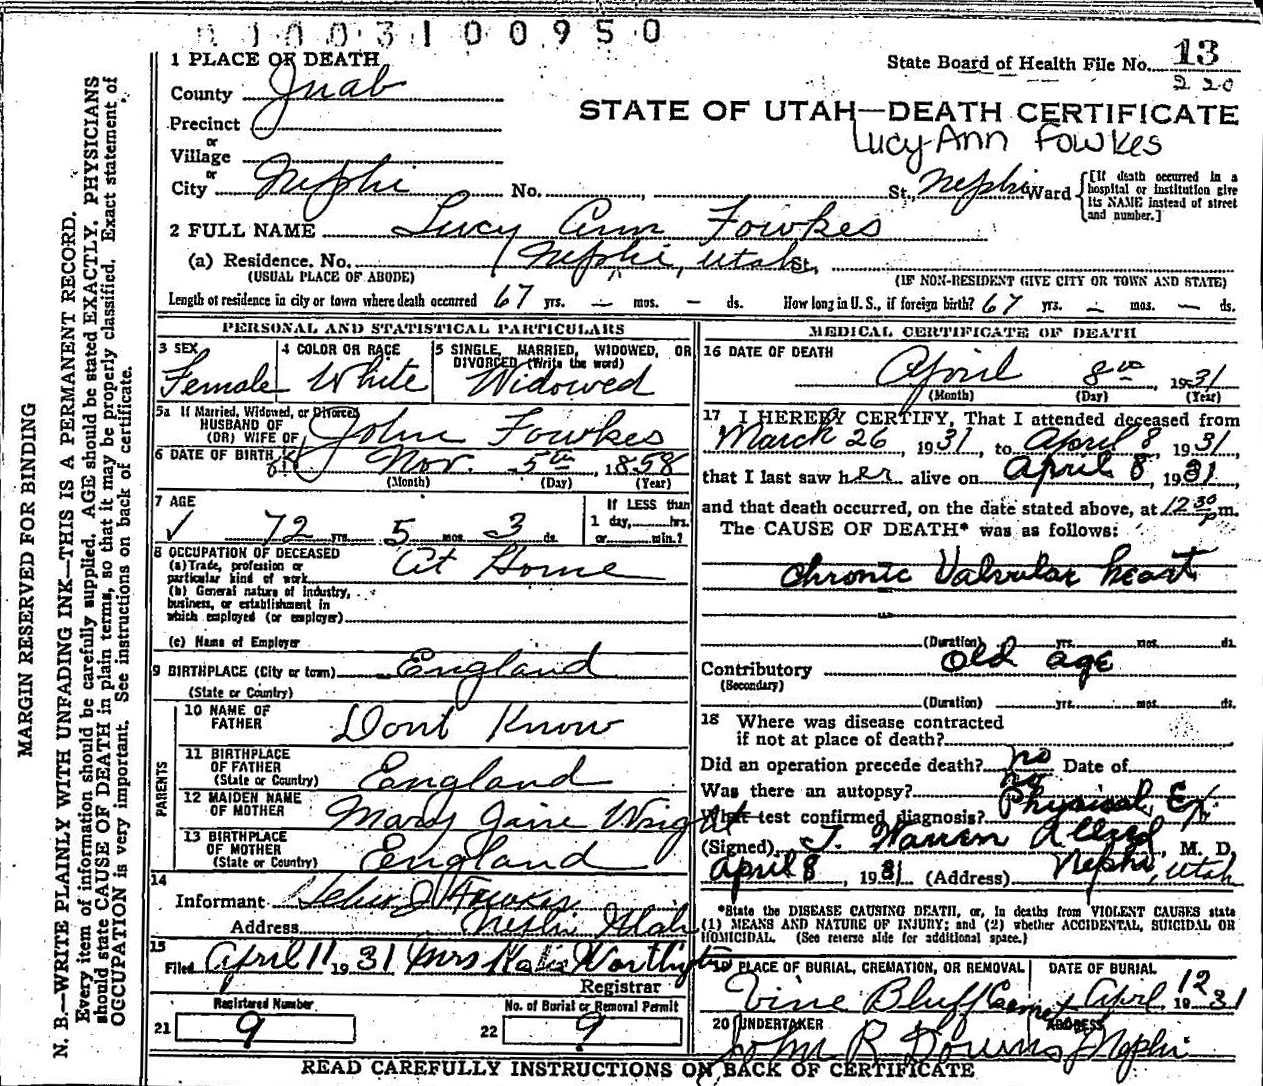 0 1 0 0 3 1 0 0 9 5 0
State Board of Health File No. 13
220
1 PLACE OF DEATH
County Juab
STATE OF UTAH—DEATH CERTIFICATE
Precinct
Lucy Ann Fowkes
or
Village
or
City Nephi No. St., Nephi Ward [If death occurred in a hospital or institution give its NAME instead of street and number.]
2 FULL NAME Lucy Ann Fowkes
(a) Residence. No. Nephi, Utah St.,
(USUAL PLACE OF ABODE) (IF NON-RESIDENT GIVE CITY OR TOWN AND STATE)
Length of residence in city or town where death occurred 67 yrs. — mos. — ds. How long in U. S., if foreign birth? 67 yrs. — mos. — ds.
PERSONAL AND STATISTICAL PARTICULARS
3 SEX
Female
4 COLOR OR RACE
White
5 SINGLE, MARRIED, WIDOWED, OR
DIVORCED (Write the word)
Widowed
5a If Married, Widowed, or Divorced
HUSBAND OF
(OR) WIFE OF John Fowkes
6 DATE OF BIRTH Nov. 5th, 1858
(Month) (Day) (Year)
7 AGE
72 yrs. 5 mos. 3 ds.
If LESS than
1 day, hrs.
or min.?
8 OCCUPATION OF DECEASED
(a) Trade, profession or
particular kind of work At Home
(b) General nature of Industry,
business, or establishment in
which employed (or employer)
(c) Name of Employer
9 BIRTHPLACE (City or town) England
(State or Country)
PARENTS
10 NAME OF
FATHER Dont Know
11 BIRTHPLACE
OF FATHER
(State or Country) England
12 MAIDEN NAME
OF MOTHER Mary Jane Wright
13 BIRTHPLACE
OF MOTHER
(State or Country) England
14
Informant John J Fowkes
Address Nephi Utah
15
Filed April 11 1931 Mrs Katie Worthington
Registrar
Registered Number
21 9
No. of Burial or Removal Permit
22 9
MEDICAL CERTIFICATE OF DEATH
16 DATE OF DEATH
April 8th, 1931
(Month) (Day) (Year)
17 I HEREBY CERTIFY, That I attended deceased from
March 26, 1931, to April 8, 1931,
that I last saw her alive on April 8, 1931,
and that death occurred, on the date stated above, at 12 30 p m.
The CAUSE OF DEATH* was as follows:
Chronic Valvular heart
(Duration) yrs. mos. ds.
Contributory Old age
(Secondary)
(Duration) yrs. mos. ds.
18 Where was disease contracted
if not at place of death?
Did an operation precede death? no Date of
Was there an autopsy? no
What test confirmed diagnosis? Physical Ex.
(Signed) J. Warren Allred, M. D.
April 8, 1931 (Address) Nephi, Utah
*State the DISEASE CAUSING DEATH, or, in deaths from VIOLENT CAUSES state
(1) MEANS AND NATURE OF INJURY; and (2) whether ACCIDENTAL, SUICIDAL OR
HOMICIDAL. (See reverse side for additional space.)
19 PLACE OF BURIAL, CREMATION, OR REMOVAL
Vine Bluff Cemet
DATE OF BURIAL
April 12 1931
20 UNDERTAKER
John R Downs
ADDRESS
Nephi
READ CAREFULLY INSTRUCTIONS ON BACK OF CERTIFICATE
MARGIN RESERVED FOR BINDING
N. B.—WRITE PLAINLY WITH UNFADING INK—THIS IS A PERMANENT RECORD.
Every item of information should be carefully supplied. AGE should be stated EXACTLY. PHYSICIANS
should state CAUSE OF DEATH in plain terms, so that it may be properly classified. Exact statement of
OCCUPATION is very important. See instructions on back of certificate.